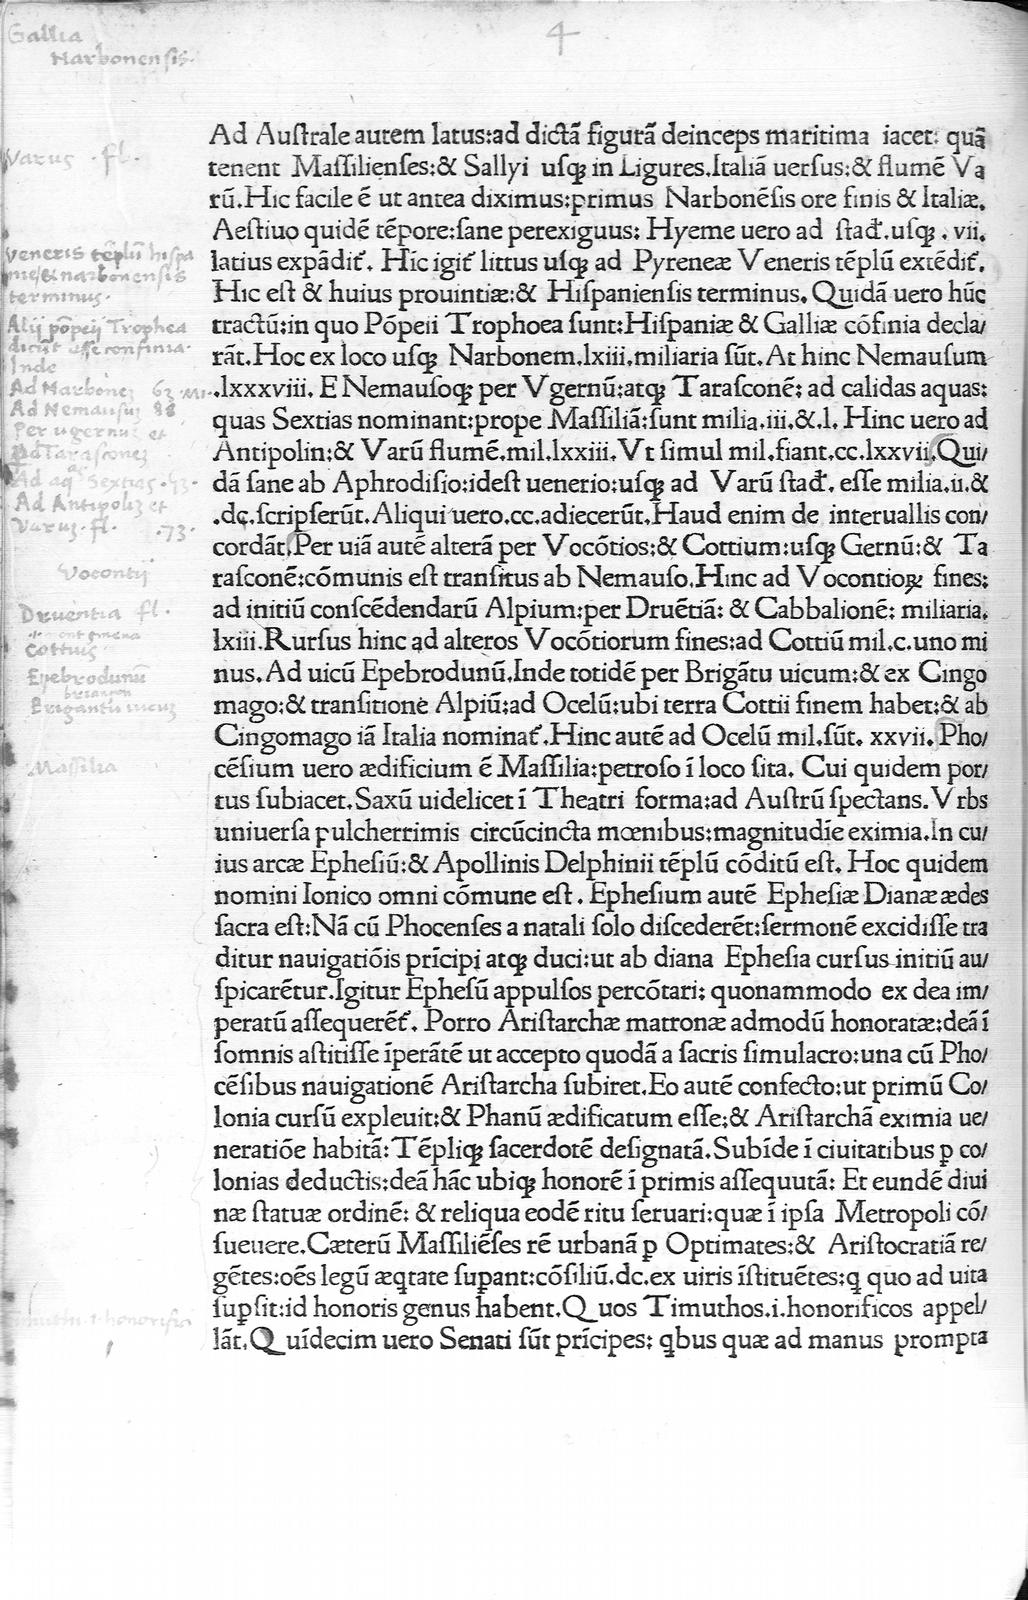 4
Gallia
Narbonensis.
Varus . fl.
Veneris tēplū hispa
terminus.
Alij pōpeij Trophea
dicūt esse confinia.
Inde
Ad Narbonez 63 mi.
Ad Nemausuz 88
Per ugernuz et
Ad Tarasconez
Ad aq̄s Sextias .53.
Ad Antipoliz et
Varus. fl. .73.
Vocontij
Druentia fl.
Cottius
Epebrodunū
briançon
Brigantū uicuz
Massilia
Ad Auſtrale autem latus:ad dictā figurā deinceps maritima iacet: quā
tenent Maſſilienſes:& Sallyi uſqꝫ in Ligures.Italiā uerſus:& flumē Va
rū.Hic facile ē ut antea diximus:primus Narbonēſis ore finis & Italiæ.
Aeſtiuo quidē tēpore:ſane perexiguus: Hyeme uero ad ſtad̓.uſqꝫ . vii.
latius expādit̓. Hic igit̓ littus uſqꝫ ad Pyreneæ Veneris tēplū extēdit̓.
Hic eſt & huius prouintiæ:& Hiſpanienſis terminus. Quidā uero hūc
tractū:in quo Pōpeii Trophoea ſunt:Hiſpaniæ & Galliæ cōfinia decla/
rāt.Hoc ex loco uſqꝫ Narbonem.lxiii.miliaria ſūt. At hinc Nemauſum
.lxxxviii. E Nemauſoqꝫ per Vgernū:atqꝫ Taraſconē: ad calidas aquas:
quas Sextias nominant:prope Maſſiliā:ſunt milia.iii.&.l. Hinc uero ad
Antipolin:& Varū flumē.mil.lxxiii.Vt ſimul mil.fiant.cc.lxxvii.Qui/
dā ſane ab Aphrodiſio:ideſt uenerio:uſqꝫ ad Varū ſtad̓. eſſe milia.ii.&
.dç.ſcripſerūt.Aliqui uero.cc.adiecerūt.Haud enim de interuallis con/
cordāt.Per uiā autē alterā per Vocōtios:& Cottium:uſqꝫ Gernū:& Ta
raſconē:cōmunis eſt tranſitus ab Nemauſo.Hinc ad Vocontioꝝ fines:
ad initiū conſcēdendarū Alpium:per Druētiā: & Cabbalionē: miliaria.
lxiii.Rurſus hinc ad alteros Vocōtiorum fines:ad Cottiū mil.c.uno mi
nus. Ad uicū Epebrodunū.Inde totidē per Brigātu uicum:& ex Cingo
mago:& tranſitionē Alpiū:ad Ocelū:ubi terra Cottii finem habet:& ab
Cingomago iā Italia nominat̓.Hinc autē ad Ocelū mil.ſūt. xxvii. Pho/
cēſium uero ædificium ē Maſſilia:petroſo ī loco ſita. Cui quidem por/
tus ſubiacet.Saxū uidelicet ī Theatri forma:ad Auſtrū ſpectans.Vrbs
uniuerſa pulcherrimis circūcincta mœnibus:magnitudīe eximia.In cu/
ius arcæ Epheſiū:& Apollinis Delphinii tēplū cōditū eſt. Hoc quidem
nomini Ionico omni cōmune eſt . Epheſium autē Epheſiæ Dianæ ædes
ſacra eſt:Nā cū Phocenſes a natali ſolo diſcederēt:ſermonē excidiſſe tra
ditur nauigatiōis prīcipi atqꝫ duci:ut ab diana Epheſia curſus initiū au/
ſpicarētur.Igitur Epheſū appulſos percōtari: quonammodo ex dea im/
peratū aſſequerēt̓. Porro Ariſtarchæ matronæ admodū honoratæ:deā ī
ſomnis aſtitiſſe īperātē ut accepto quodā a ſacris ſimulacro:una cū Pho/
cēſibus nauigationē Ariſtarcha ſubiret.Eo autē confecto:ut primū Co/
lonia curſū expleuit:& Phanū ædificatum eſſe:& Ariſtarchā eximia ue/
neratiōe habitā:Tēpliqꝫ ſacerdotē deſignatā.Subīde ī ciuitatibus ꝑ co/
lonias deductis:deā hāc ubiqꝫ honorē ī primis aſſequutā: Et eundē diui
næ ſtatuæ ordinē: & reliqua eodē ritu ſeruari:quæ ī ipſa Metropoli cō/
ſueuere.Cæterū Maſſiliēſes rē urbanā ꝑ Optimates:& Ariſtocratiā re/
gētes:oēs legū æqtate ſuꝑant:cōſiliū.dc.ex uiris īſtituētes:q quo ad uita
ſuꝑſit:id honoris genus habent.Quos Timuthos.i.honorificos appel/
lāt.Quīdecim uero Senati ſūt prīcipes: qbus quæ ad manus prompta